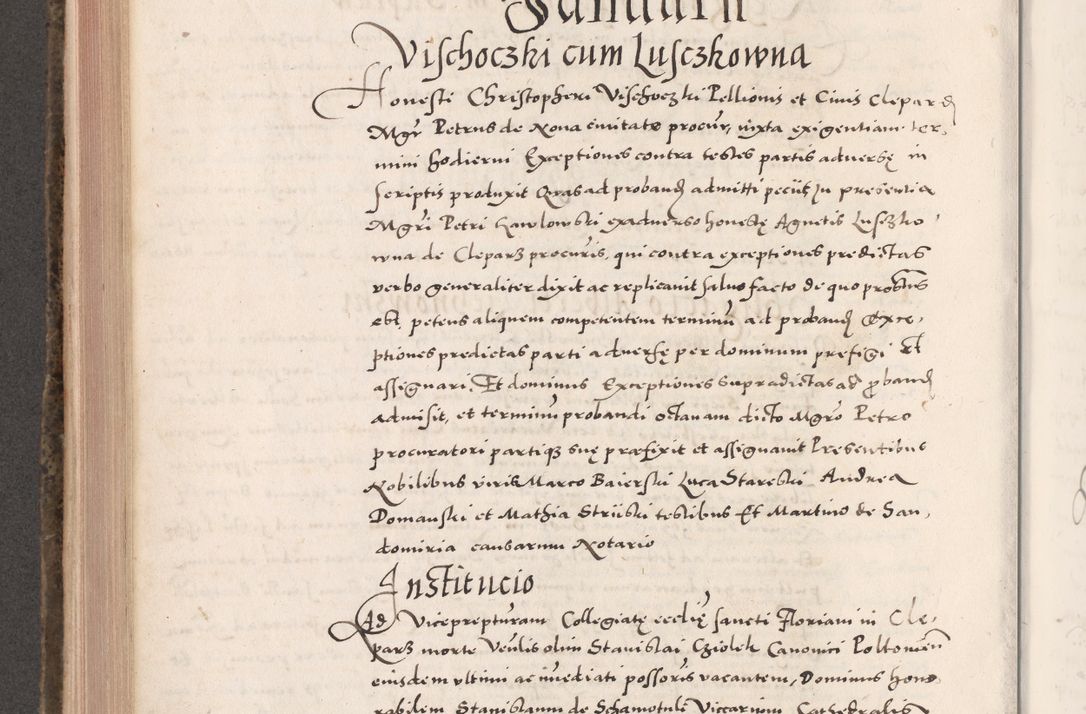 Januarii
Vischoczki cum Lusczkowna
Honesti Christopheri Vischoczki Pellionis et Civis Clepard
Mgr Petrus de Nova civitate procur, iuxta exigentiam ter,
mini hodierni Exceptiones contra testes partis adversę in
scriptis produxit Quas ad proband admitti peciit, In presentia
Mgri Petri Gawlowski ex adverso honestę Agnetis Lusczko,
wna de Cleparz procuris, qui contra exceptiones predictas
verbo generaliter dixit ac replicavit salvo facto de quo protus
est, petens aliquem competentem terminu ad proband Exce,
ptiones predictas parti adversę per dominum prefigi et
assignari, Et dominus Exceptiones supradictas ad proband
admisit, et terminu probandi octavam dicto Mgro Petro
procuratori partiq3 suę præfixit et assignavit Presentibus
Nobilibus viris Marco Baierski Luca Stareski Andrea
Domanski et Mathia Struski testibus Et Martino de San,
domiria causarum Notario
Institucio
Ad Viceprepturam Collegiatę ecclię sancti Floriani in Cle,
parz morte Venlis olim Stanislai Cziolek Canonici Poltonien
eiusdem ultimi ac imediati possoris vacantem, Dominus hono
rabilem Stanislaum de Schamotule Viccarium Cathedralis